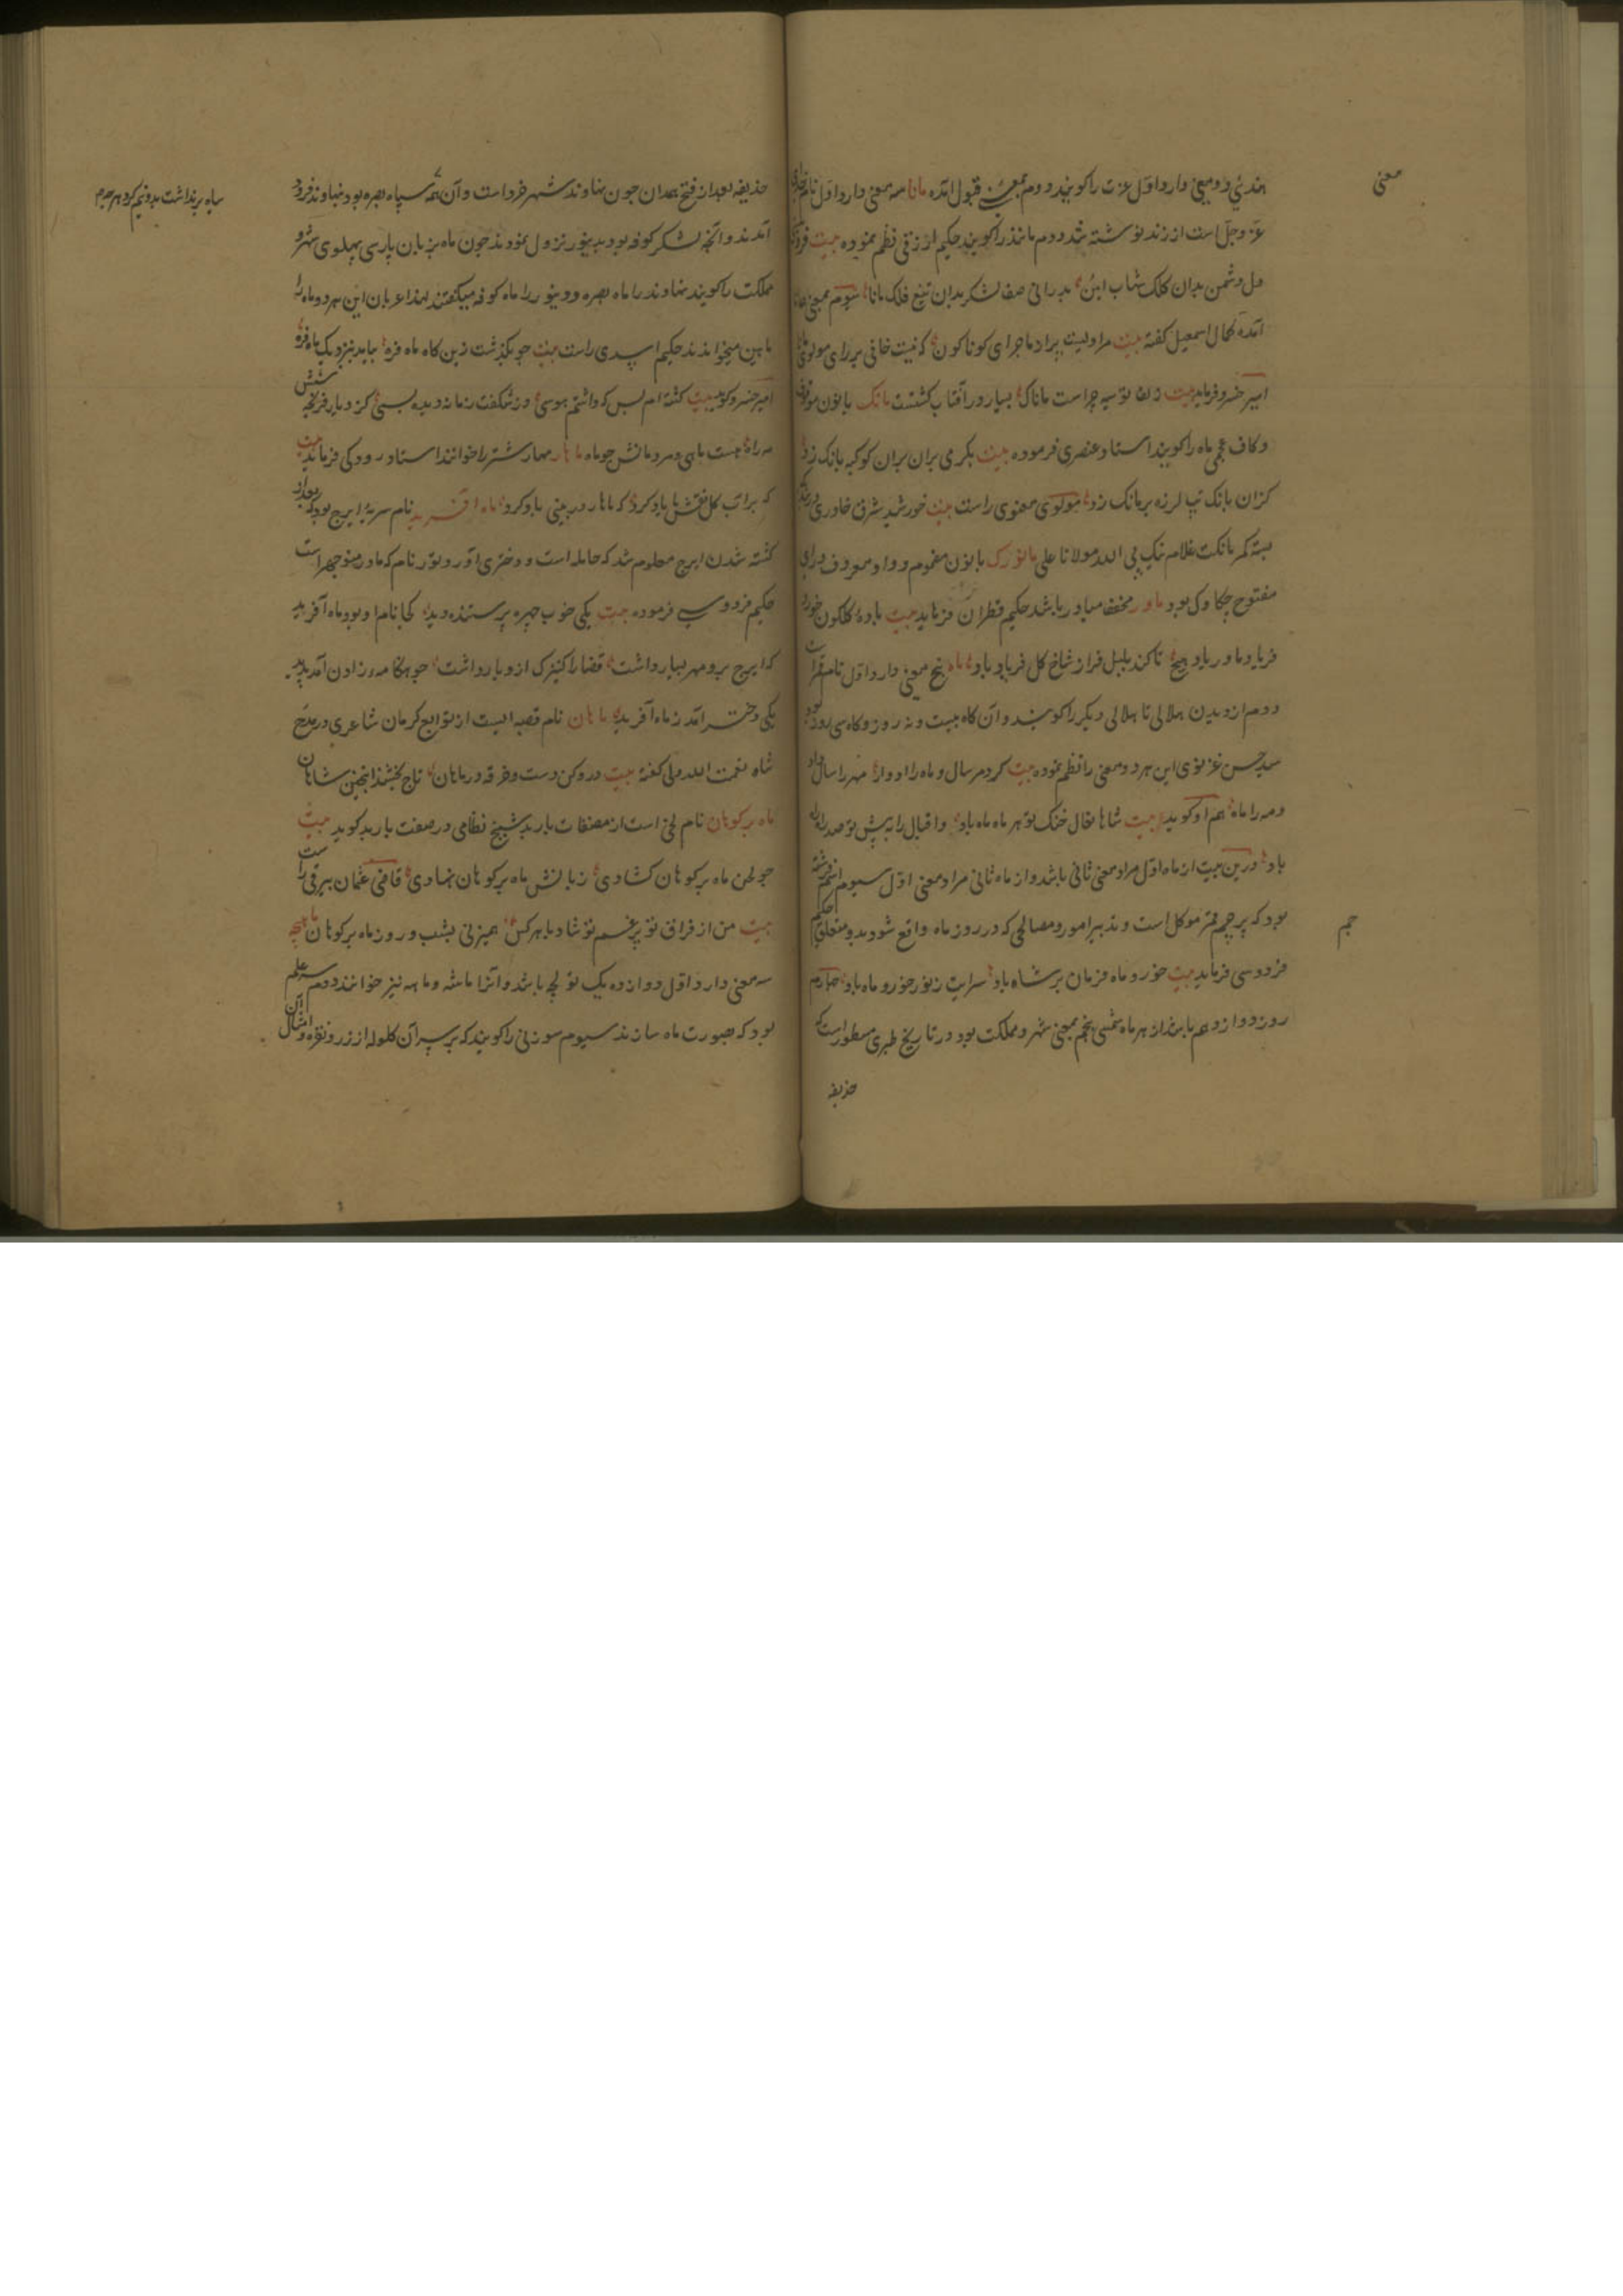 هندی دو معنی دارد اول عزت را کویند دوم بمعنی قبول آمده مانا سه معنی دارد اول نام خدای
عز وجل است از زند نوشته شد دوم مانند را کویند حکیم ازرقی نظم نموده بیت
دل دشمن بدان کلک شهاب دری صف لشکر بدان تیغ فلک مانا سوم بمعنی همانا
آمده کمال اسمعیل کفته بیت مرا ولیت پر از ماجرای کوناکون که نیست خافی بر رای مولوی مانا
امیر خسرو فرماید بیت زلف تو سیه چراست ماناک بسیار در آفتاب کشتست مانک با نون موقوف
و کاف عجمی ماه را کویند استاد عنصری فرموده بیت
کزان بانک تب لرزه بر مانک زد مولوی معنوی راست بیت خورشید شرق خاوری در بندکی
بسته کمر مانکت غلام نیک پی الله مولانا علی مانورک با نون مضموم و واو معروف و رای
مفتوح چکاوک بود ماور مخفف میاور باشد حکیم قطران فرماید بیت باده کلکون خور
فریاد ماور یاد هیچ تا کند بلبل فراز شاخ کل فریاد باد ماه پنج معنی دارد اول نام قمر است
دوم از دیدن هلالی تا هلالی دیکر را کویند و آن کاه بیست و نه روز و کاه سی روز بود
سید حسن غزنوی این هر دو معنی را نظم نموده بیت کرد مر سال و ماه را ادوار مهر را سال داد
و مه را ماه هم او کوید بیت شاها نعال خنک تو هر ماه ماه باد و اقبال را به پیش تو صد راه راه
باد درین بیت از ماه اول مراد معنی ثانی باشد و از ماه ثانی مراد معنی اول سیوم اسم فرشته
بود که بر جرم قمر موکل است و تدبیر امور و مصالحی که در روز ماه واقع شود بدو متعلق حکیم
فردوسی فرماید بیت خور و ماه فرمان بر شاه باد سرایت ز نور خور و ماه باد چهارم
روز دوازدهم باشد از هر ماه شمسی پنجم بمعنی شهر و مملکت بود در تاریخ طبری مسطور است که
حذیفه
معنی
جرم
حذیفه بعد از فتح همدان چون نهاوند شهر خرد است و آن همه سپاه بصره بود بنهاوند فرود
آمدند و آنچه لشکر کوفه بود بدینور نزول نمودند چون ماه بزبان پارسی پهلوی شهر و
مملکت را کویند نهاوند را ماه بصره و دینور را ماه کوفه میکفتند لهذا عربان این هر دو ماه را
ماهین میخوانند حکیم اسدی راست بیت چو بکذشت زین کاه ماه فره بیامد بنزدیک ماه فره
امیر خسرو کوید بیت کشته ام بس که داشتم هوسی وز شکفت زمانه دیده بسی
مه راه هست باهی و مردمانش چو ماه ماهار مهار شتر را خوانند استاد رودکی فرماید بیت
که بر آب کل نقش ما یاد کرد که ماهار در بینی باد کرد ماه آفرید نام سریه ایرج بود که بعد از
کشته شدن ایرج معلوم شد که حامله است و دختری آورد تور نام که مادر منوچهر است
حکیم فردوسی فرموده بیت یکی خوب چهره پرستنده دید کجا نام او بود ماه آفرید
که ایرج برو مهر بسیار داشت قضا را کنیزک ازو بار داشت چو هنکامه زادن آمد پدید
یکی دختر آمد ز ماه آفرید ماهان نام قصبه ایست از توابع کرمان شاعری در مدح
شاه نعمت الله ولی کفته بیت در دکن دست و خرقه در ماهان تاج بخشند انچنین شاهان
ماه بر کوهان نام لحنی است از مصنفات باربد شیخ نظامی در صفت باربد کوید بیت
چو لحن ماه بر کوهان کشادی زبانش ماه بر کوهان نهادی قاضی عثمان بیرقی راست
بیت من از فراق تو پر غم تو شاد با هر کس همیزنی بشب و روز ماه بر کوهان ماهچه
سه معنی دارد اول دوازده یک تولچه باشد و آنرا ماشه و ماهه نیز خوانند دوم سر علم
بود که بصورت ماه سازند سیوم سوزنی را کویند که بر سر آن کلوله از زر و نقره و امثال آن